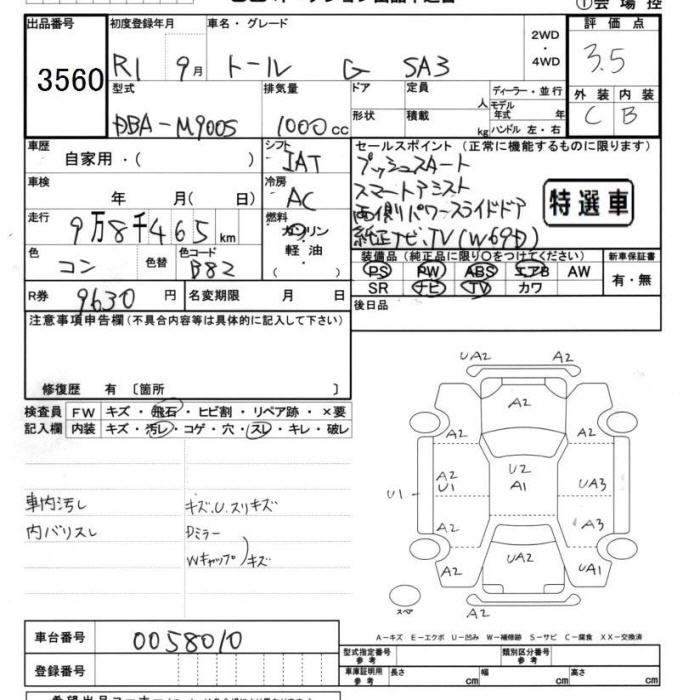 出品番号 3560
初度登録年月 R1 9月
車名・グレード トール G SA3
2WD ・ 4WD
評価点 3.5
外装 C 内装 B
型式 DBA-M900S
排気量 1000cc
ドア 形状
定員 人
積載 kg
ディーラー・並行
モデル年式 年
ハンドル 左・右
車歴 自家用・( )
シフト IAT
セールスポイント(正常に機能するものに限ります)
プッシュスタート
スマートアシスト
両側パワースライドドア
純正ナビ、TV(W69D)
特選車
車検 年 月( 日)
冷房 AC
走行 9万8千465km
燃料 ガソリン 軽油 ( )
色 コン 色替 色コード B82
装備品(純正品に限り○をつけてください)
PS PW ABS エアB AW
SR ナビ TV カワ
新車保証書 有・無
R券 9630円 名変期限 月 日
後日品
注意事項申告欄(不具合内容等は具体的に記入して下さい)
修復歴 有〔箇所 〕
検査員記入欄
FW キズ・飛石・ヒビ割・リペア跡・×要
内装 キズ・汚レ・コゲ・穴・スレ・キレ・破レ
車内汚し キズ.U.スリキズ
内バリスレ Dミラー
Wキャップ)キズ
UA2 A2
A2
A2 A2
A2 U1 U2 A1 UA3
U1
A2 A3
UA2
A2 UA1
スペア A2
A-キズ E-エクボ U-凹み W-補修跡 S-サビ C-腐食 XX-交換済
車台番号 0058010
登録番号
型式指定番号 参考 類別区分番号 参考
車庫証明用 参考 長さ cm 幅 cm 高さ cm